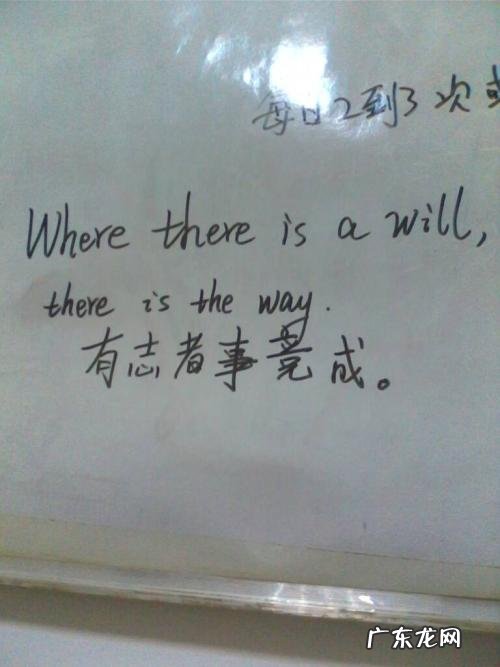 每日2到3次
Where there is a will,
there is the way.
有志者事竟成。
广东龙网